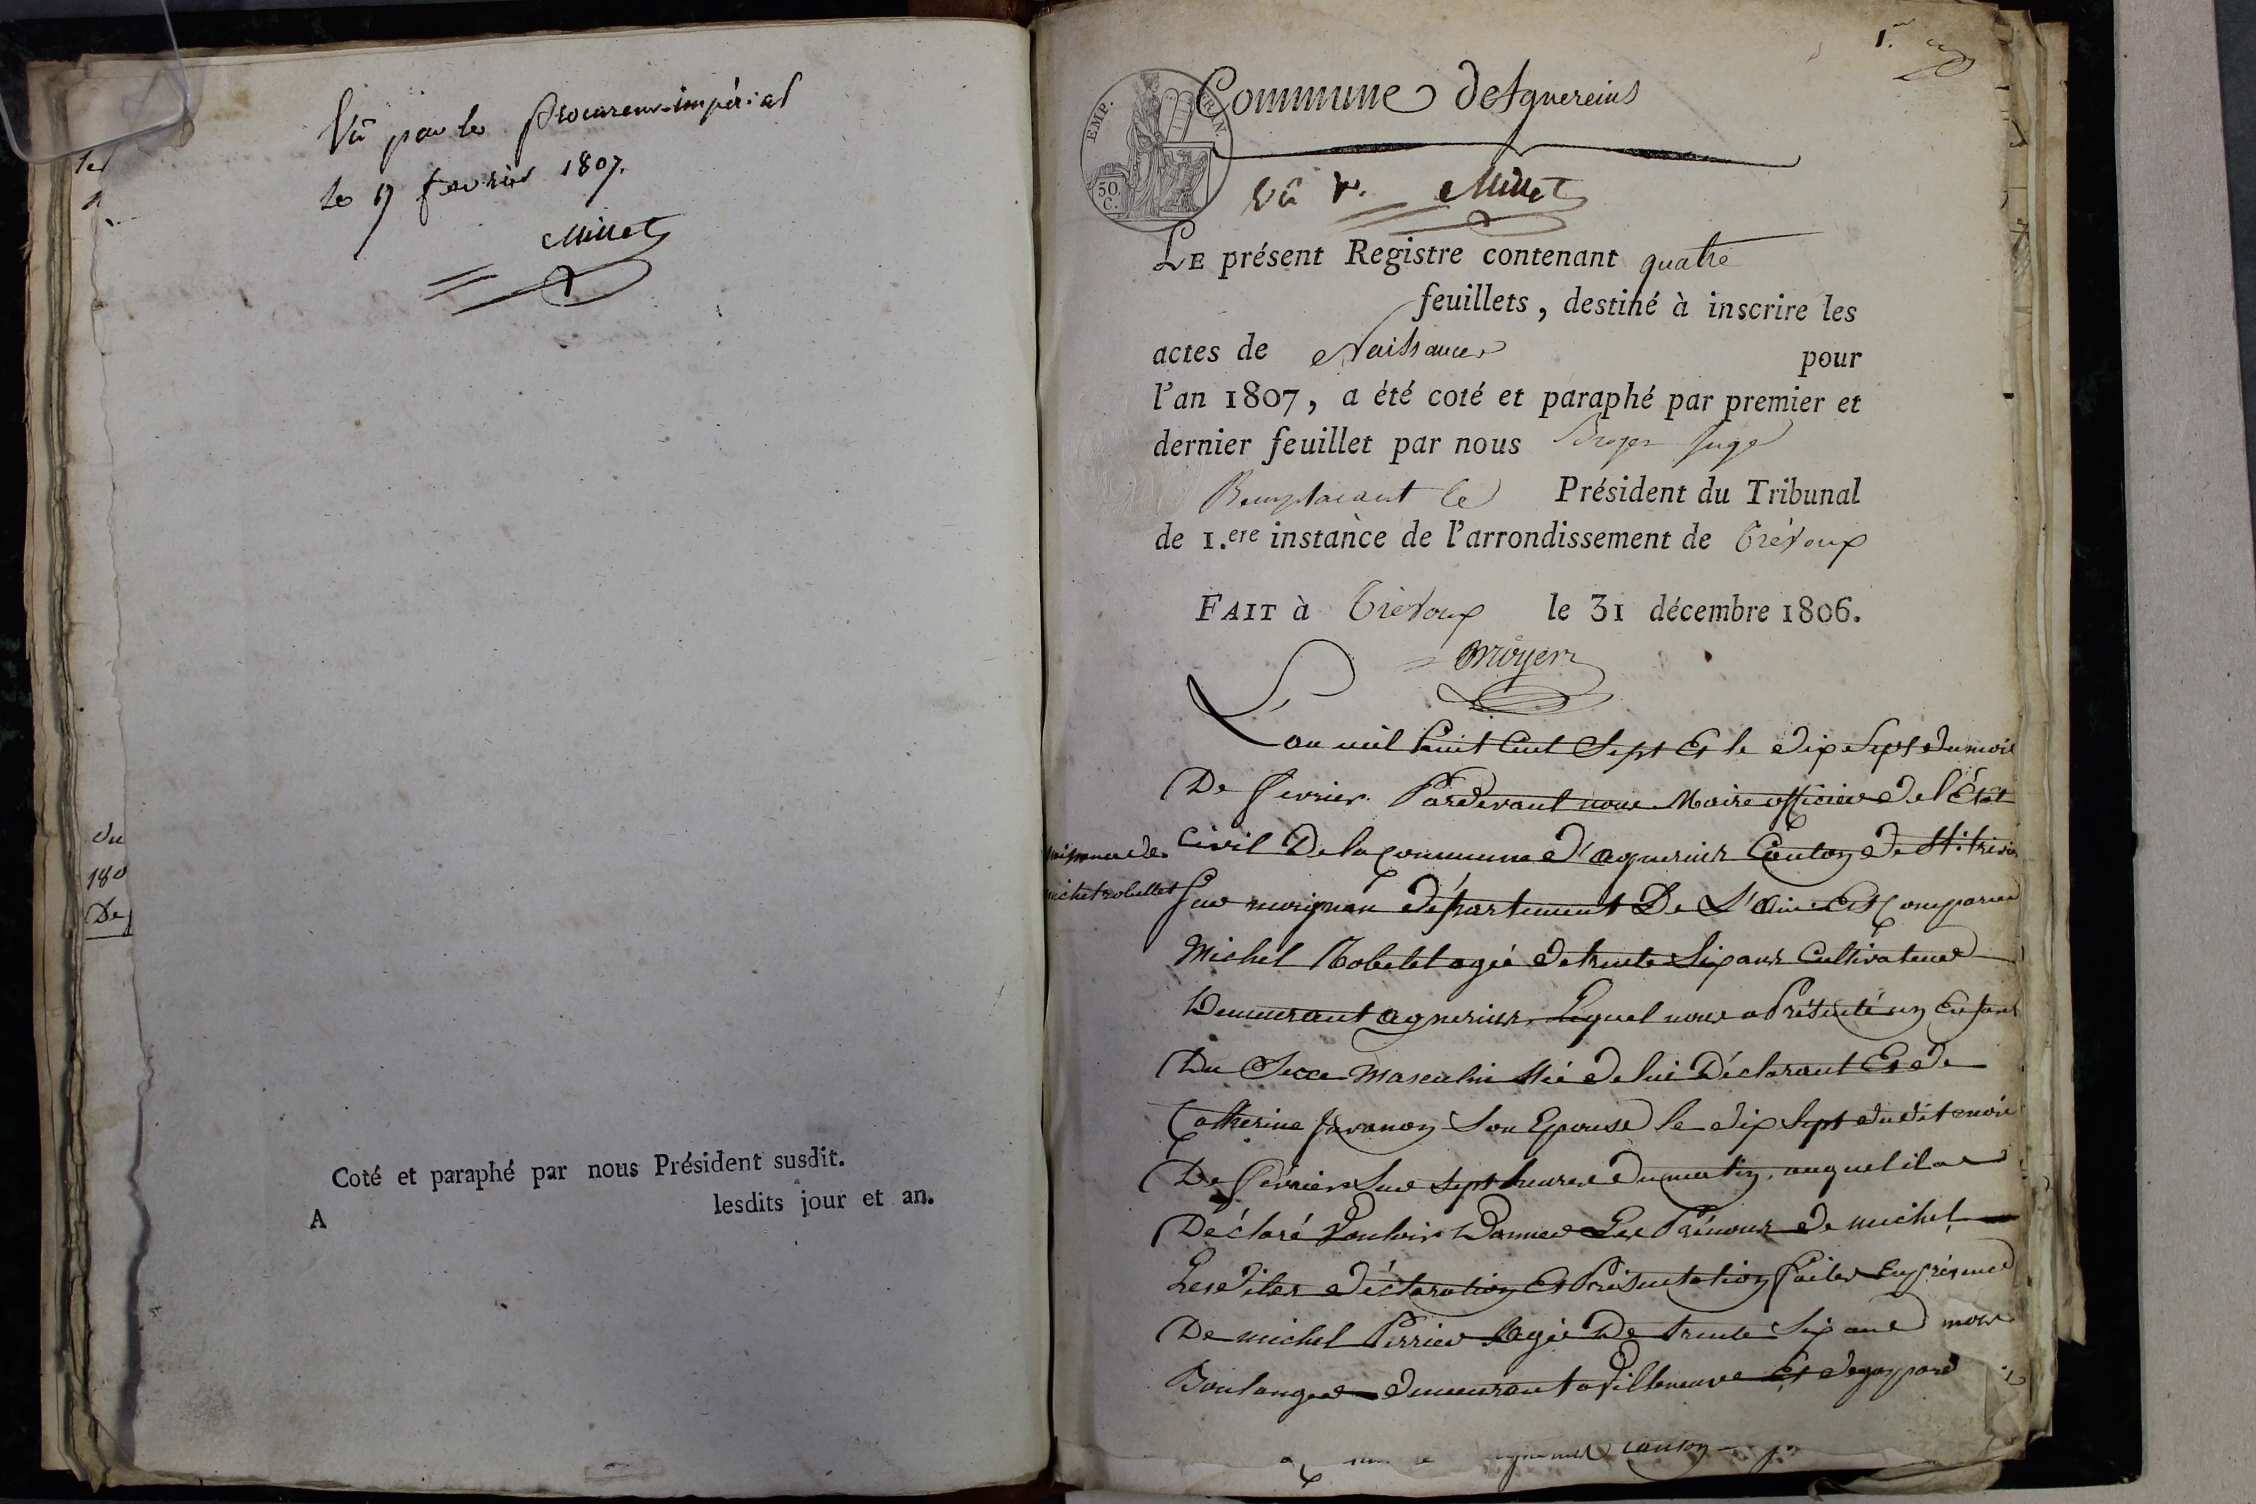 Vû par le Procureur impérial
le 17 fevrier 1807.
Millet
Coté et paraphé par nous Président susdit.
A lesdits jour et an.
du
180
De
1.er
Commune d'Agnereins
EMP. FRAN.
50 C.
Vû Millet
LE présent Registre contenant quatre
feuillets, destiné à inscrire les
actes de Naissances pour
l'an 1807, a été coté et paraphé par premier et
dernier feuillet par nous Juge
Remplacant le Président du Tribunal
de 1.ere instance de l'arrondissement de Trévoux
FAIT à Trévoux le 31 décembre 1806.
L'an mil huit Cent Sept Et le dix Sept du mois
De fevrier. Pardevant nous Maire officier de l'État
Civil De la Commune d'agnereins Canton de St. trivier
Sur moignan département De L'ain Est Comparu
naissance de
michel robellet
Michel Robelet agé de trente Six ans Cultivateur
Demeurant agnereins, Lequel nous a Présenté un Enfant
Du Sexe Masculin Né de lui Déclarant Et de
Catherine Son Epouse le dix Sept dudit mois
De février Sur Sept heures du matin, auquel il a
Déclaré Vouloir Donner Les Prénoms de michel
Lesdites déclaration Et Présentation faites En présence
De michel Perrier agé De trente Six ans
Boulanger demeurant a Villeneuve Et de gaspard
Canton